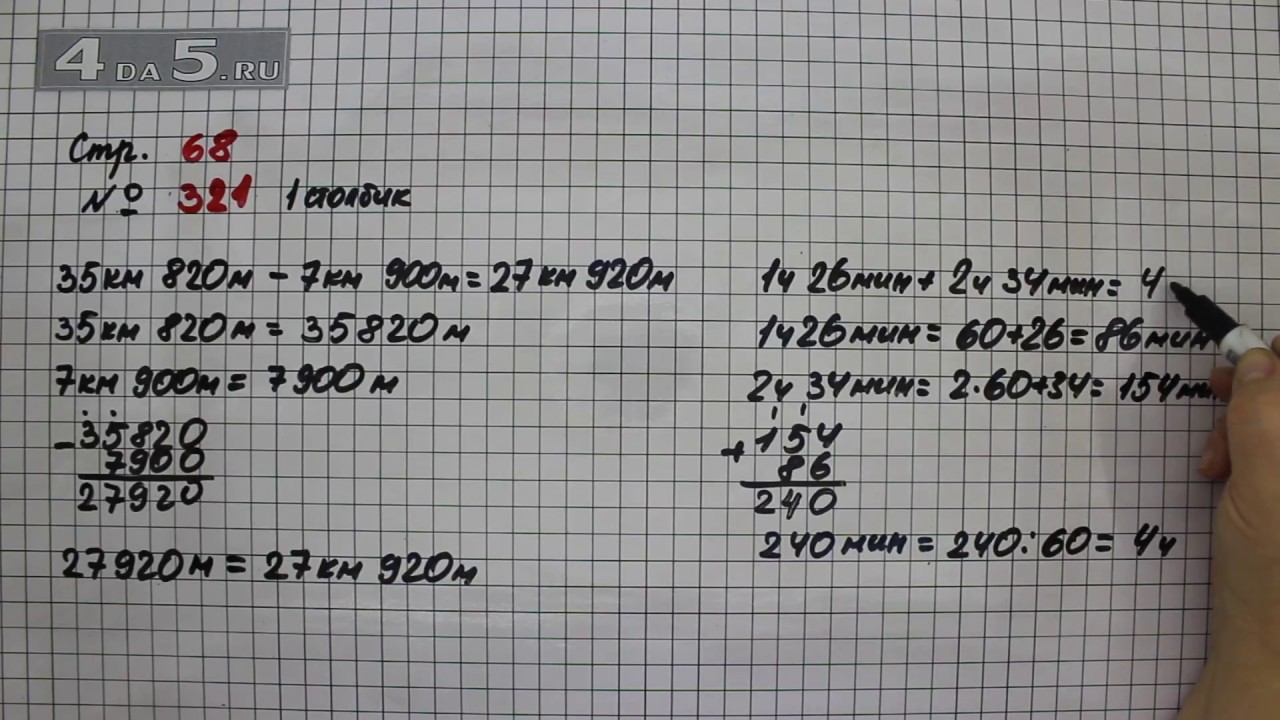 4DA5.RU
Стр. 68
№ 321 1 столбик
35км 820м - 7км 900м = 27км 920м
35км 820м = 35820м
7км 900м = 7900м
- 35820
7900
27920
27920м = 27км 920м
1ч 26мин + 2ч 34мин = 4
1ч26мин = 60+26 = 86мин
2ч 34мин = 2·60+34 = 154ми
1 1
+ 154
86
240
240мин = 240:60 = 4ч